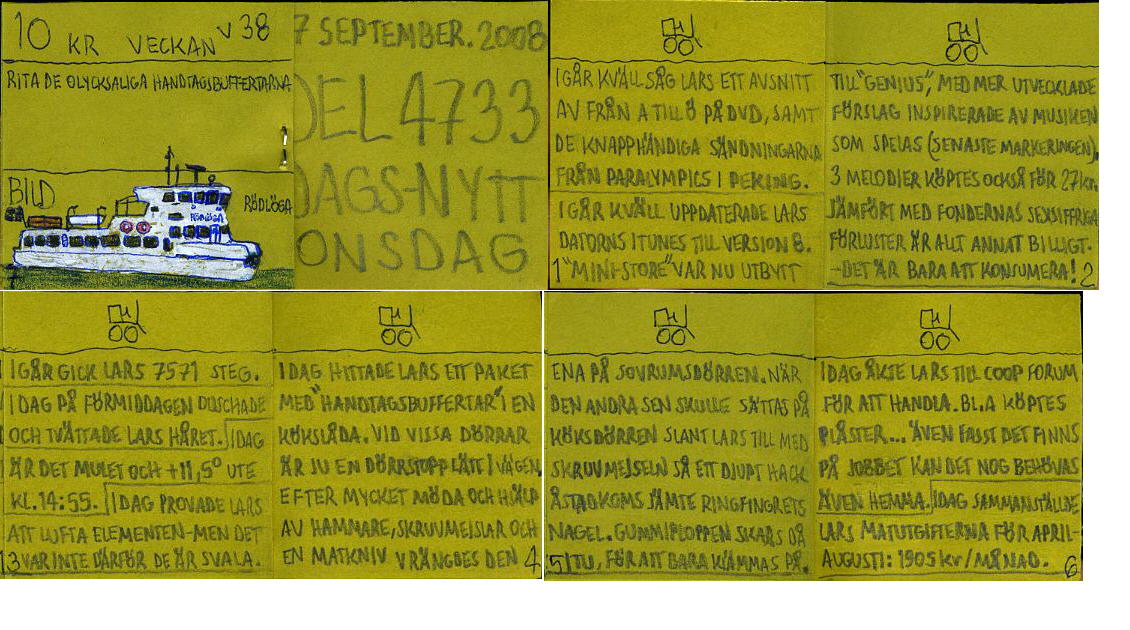 10 KR VECKAN V 38
RITA DE OLYCKSALIGA HANDTAGSBUFFERTARNA
BILD
RÖDLÖGA
RÖDLÖGA
7 SEPTEMBER. 2008
DEL 4733
DAGS-NYTT
ONSDAG
I GÅR KVÄLL SÅG LARS ETT AVSNITT
AV FRÅN A TILL Ö PÅ DVD, SAMT
DE KNAPPHÄNDIGA SÄNDNINGARNA
FRÅN PARALYMPICS I PEKING.
I GÅR KVÄLL UPPDATERADE LARS
DATORNS ITUNES TILL VERSION 8.
1 "MINI-STORE" VAR NU UTBYTT
TILL "GENIUS", MED MER UTVECKLADE
FÖRSLAG INSPIRERADE AV MUSIKEN
SOM SPELAS (SENASTE MARKERINGEN).
3 MELODIER KÖPTES OCKSÅ FÖR 27 kr.
JÄMFÖRT MED FONDERNAS SEXSIFFRIGA
FÖRLUSTER ÄR ALLT ANNAT BILLIGT-
-DET ÄR BARA ATT KONSUMERA! 2
I GÅR GICK LARS 7571 STEG.
I DAG PÅ FÖRMIDDAGEN DUSCHADE
OCH TVÄTTADE LARS HÅRET. I DAG
ÄR DET MULET OCH +11,5° UTE
KL. 14:55. I DAG PROVADE LARS
ATT LUFTA ELEMENTEN-MEN DET
3 VAR INTE DÄRFÖR DE ÄR SVALA.
I DAG HITTADE LARS ETT PAKET
MED "HANDTAGSBUFFERTAR" I EN
KÖKSLÅDA. VID VISSA DÖRRAR
ÄR JU EN DÖRRSTOPP LÄTT I VÄGEN.
EFTER MYCKET MÖDA OCH HJÄLP
AV HAMMARE, SKRUVMEJSLAR OCH
EN MATKNIV VRÄNGDES DEN 4
ENA PÅ SOVRUMSDÖRREN. NÄR
DEN ANDRA SEN SKULLE SÄTTAS PÅ
KÖKSDÖRREN SLANT LARS TILL MED
SKRUVMEJSELN SÅ ETT DJUPT HACK
ÅSTADKOMS JÄMTE RINGFINGRETS
NAGEL. GUMMIPLOPPEN SKARS DÅ
5 ITU, FÖR ATT BARA KLÄMMAS PÅ.
I DAG ÅKTE LARS TILL COOP FORUM
FÖR ATT HANDLA. BL.A KÖPTES
PLÅSTER... ÄVEN FAST DET FINNS
PÅ JOBBET KAN DET NOG BEHÖVAS
ÄVEN HEMMA. I DAG SAMMANSTÄLLDE
LARS MATUTGIFTERNA FÖR APRIL-
AUGUSTI: 1905 kr/MÅNAD. 6